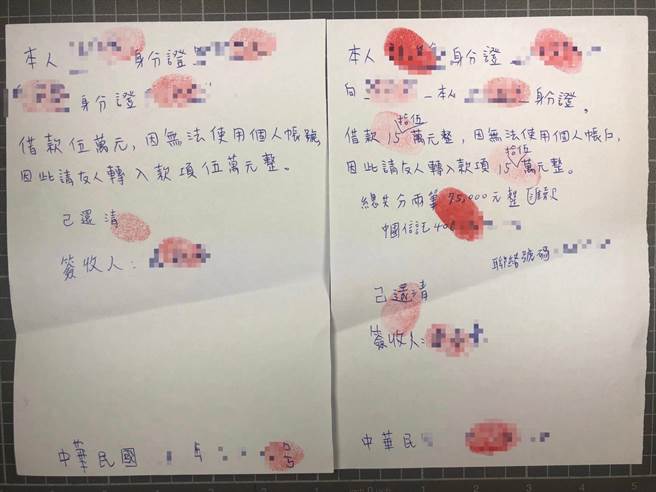 本人 身分證
身分證
借款伍萬元,因無法使用個人帳號
因此請友人轉入款項伍萬元整。
已還清
簽收人:
中華民國
本人 身分證
向 本人 身分證,
拾伍
借款15萬元整,因無法使用個人帳戶,
拾伍
因此請友人轉入款項15萬元整。
總共分兩筆75,000元整
中國信託 406
聯絡號碼
已還清
簽收人:
中華民